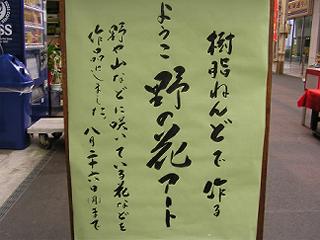 樹脂ねんどで作る
ようこ 野の花アート
野や山などに咲いている花などを
作品にしました。八月二十六日(月)まで